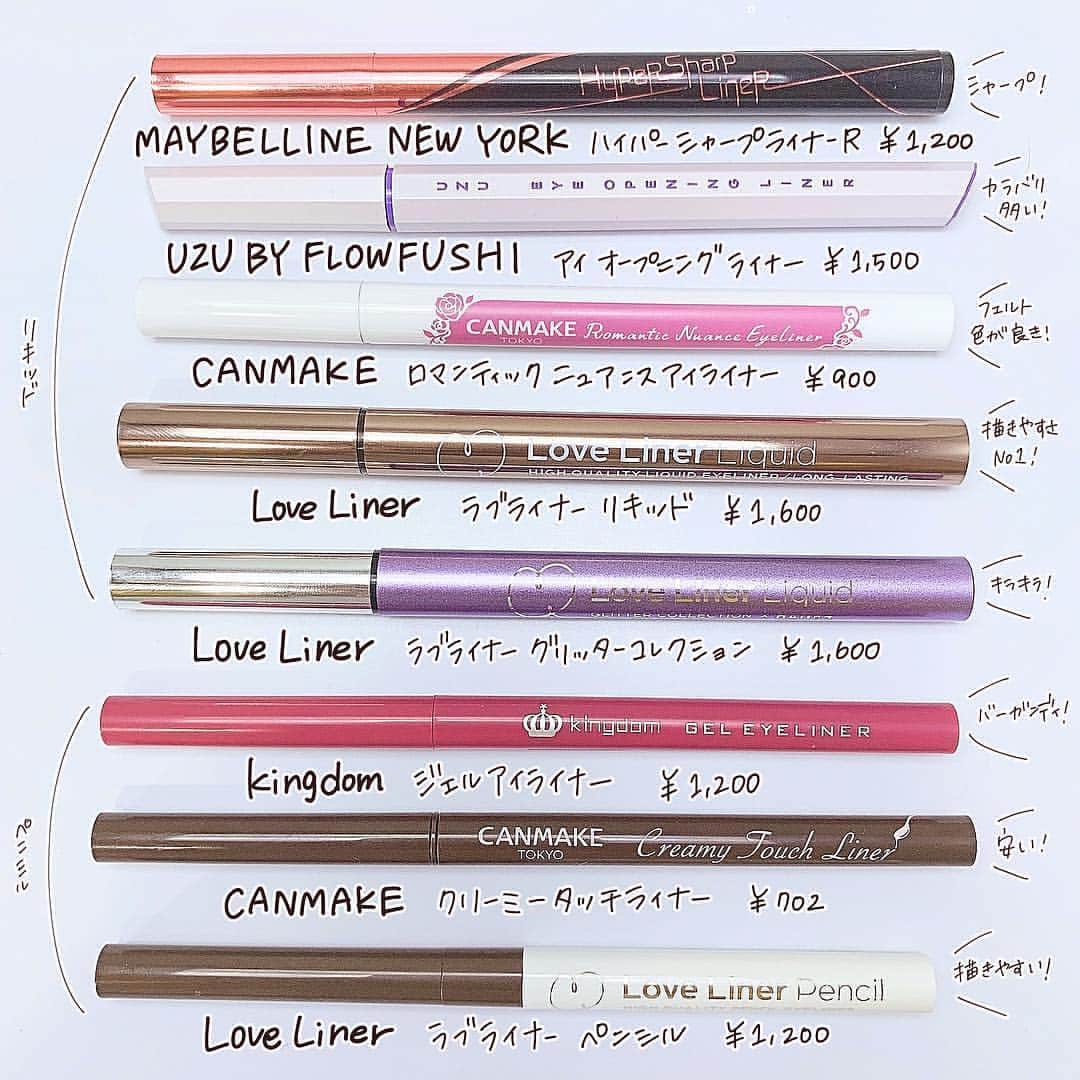 HYPER SHARP
LINER
シャープ!
MAYBELLINE NEW YORK ハイパーシャープライナーR ¥1,200
UZU EYE OPENING LINER
カラバリ
多い!
UZU BY FLOWFUSHI アイオープニングライナー ¥1,500
リキッド
CANMAKE Romantic Nuance Eyeliner
TOKYO
フェルト
色が良き!
CANMAKE ロマンティックニュアンスアイライナー ¥900
Love Liner Liquid
HIGH QUALITY LIQUID EYELINER/LONG-LASTING
描きやすさ
No1!
Love Liner ラブライナー リキッド ¥1,600
Love Liner Liquid
GLITTER COLLECTION
キラキラ!
Love Liner ラブライナー グリッターコレクション ¥1,600
kingdom GEL EYELINER
バーガンディ!
kingdom ジェルアイライナー ¥1,200
ペンシル
CANMAKE Creamy Touch Liner
TOKYO
安い!
CANMAKE クリーミータッチライナー ¥702
Love Liner Pencil
描きやすい!
Love Liner ラブライナー ペンシル ¥1,200